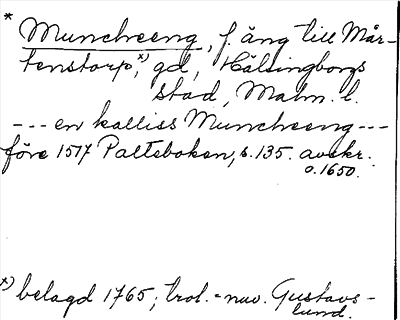 * Muncheeng, f. äng till Mår-
tenstorp,x) gd, Hälsingborgs
stad, Malm. l.
--- en kalliss Muncheeng ---
före 1517 Palteboken, s. 135. avskr.
o. 1650.
x) belagd 1765; trol. = nuv. Gustavs-
lund.